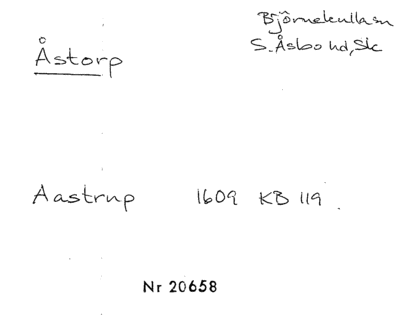 Åstorp
Björnekulla sn
S. Åsbo hd, Sk
Aastrup 1609 KB 119.
Nr 20658